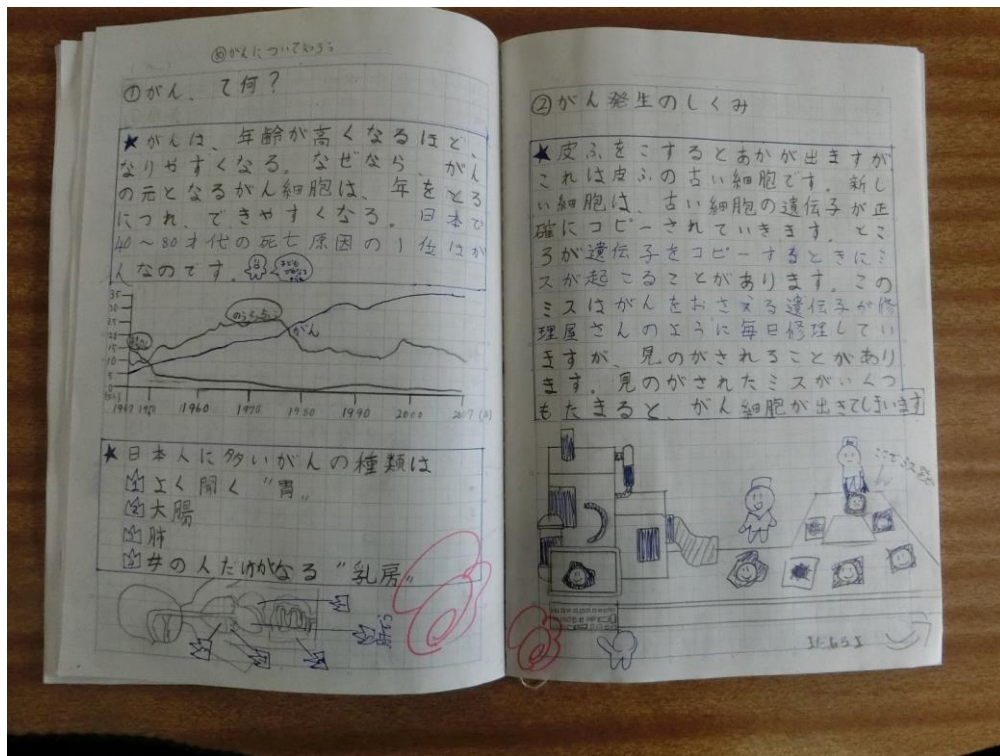 めがんについて知ろう
①がん、て何?
★がんは、年齢が高くなるほど、
なりやすくなる。なぜなら、がん
の元となるがん細胞は、年をとる
につれ、できやすくなる。日本で
40~80才代の死亡原因の1位はが
んなのです。
35
30
25
20
15
10
5
0
のうそっちゅう
がん
1947 1950 1960 1970 1980 1990 2000 2007
★日本人に多いがんの種類は
1よく聞く"胃"
2大腸
3肺
女の人だけがなる"乳房"
②がん発生のしくみ
★皮ふをこするとあかが出ますが
これは皮ふの古い細胞です。新し
い細胞は、古い細胞の遺伝子が正
確にコピーされていきます。とこ
ろが遺伝子をコピーするときにミ
スが起こることがあります。この
ミスはがんをおさえる遺伝子が修
理屋さんのように毎日修理してい
ますが、見のがされることがあり
ます。見のがされたミスがいくつ
もたまると、がん細胞が出きてしまいます